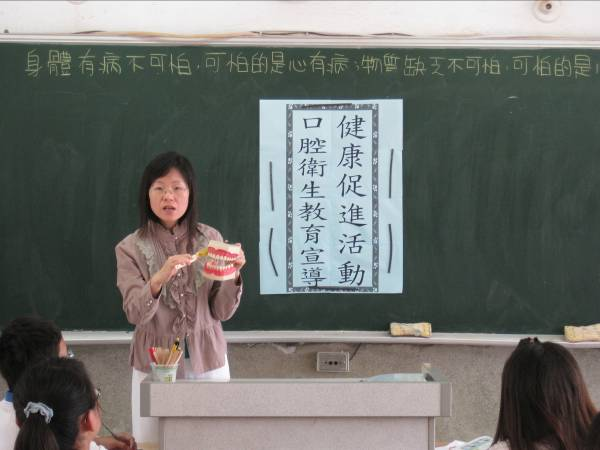 身體有病不可怕，可怕的是心有病；物質缺乏不可怕，可怕的是心
健康促進活動
口腔衛生教育宣導